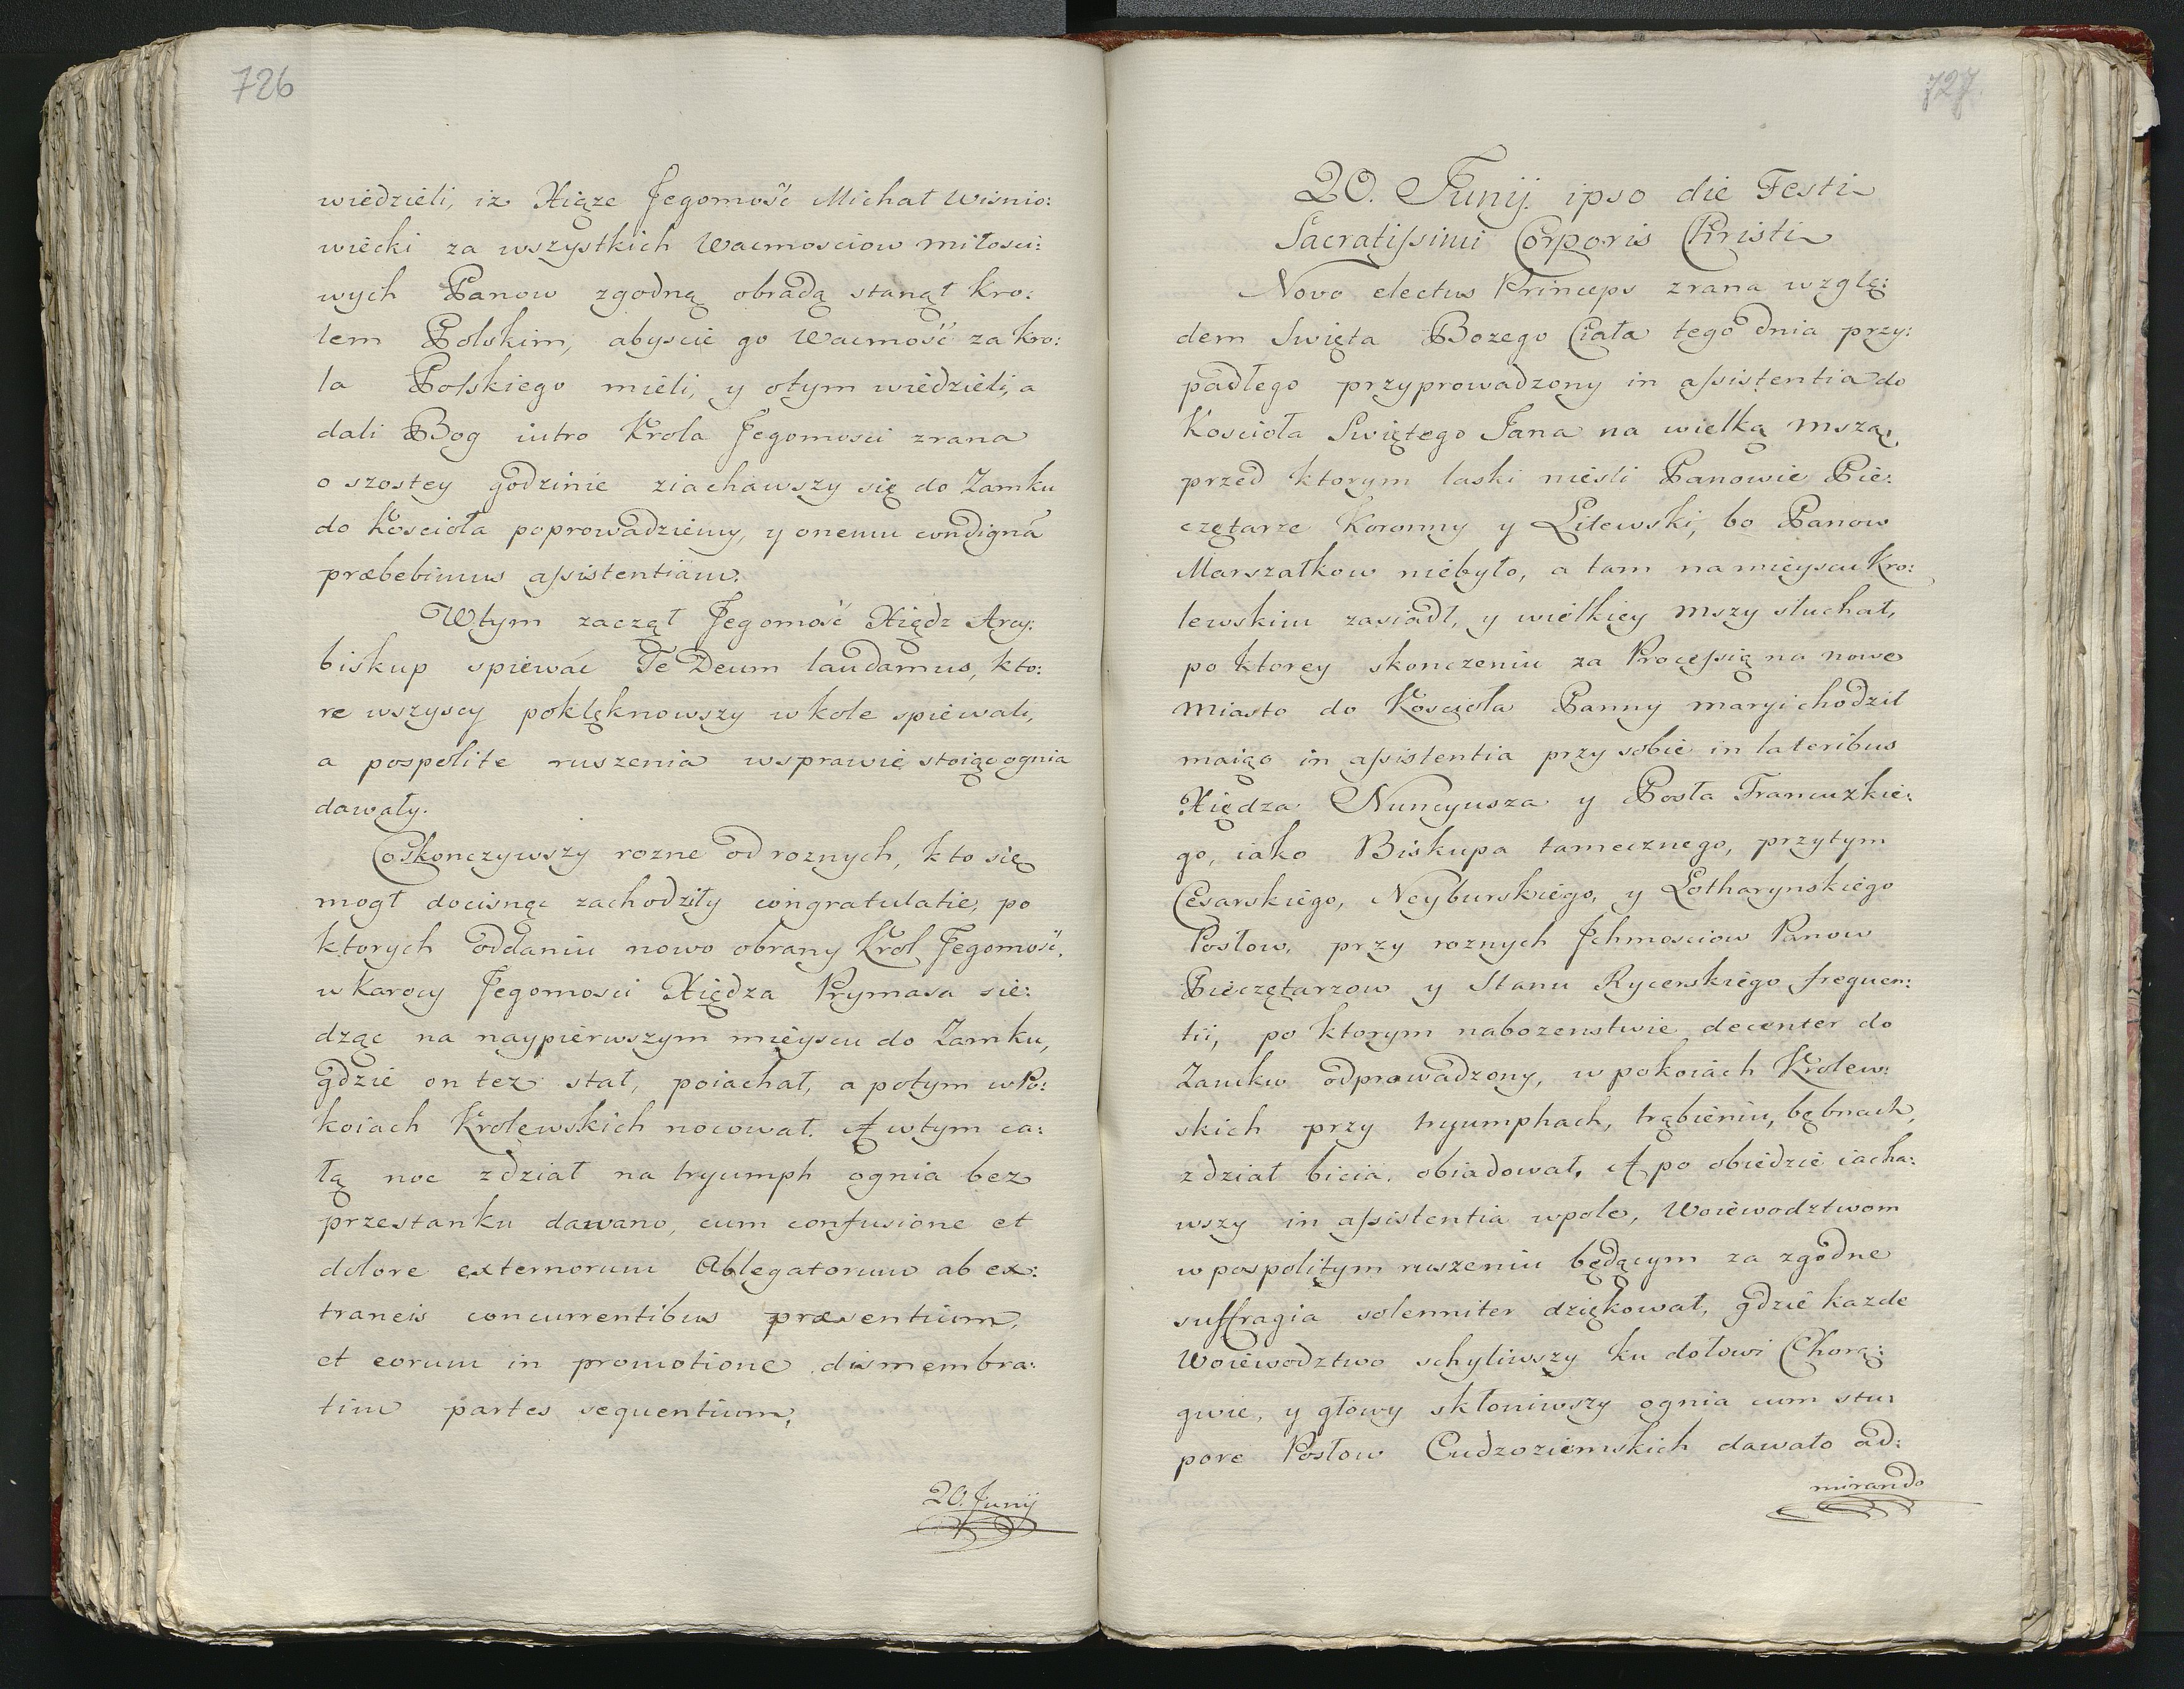 726
wiedzieli, iz Xiąze Jegomość Michał Wisnio:
wiecki za wszystkich Wacmosciow miłosci:
wych Panow zgodną obradą stanął Kro:
lem Polskim, abyscie go Wacmość za Kro:
la Polskiego mieli, y otym wiedzieli, a
dali Bog iutro Krola Jegomosci zrana
o szostey godzinie ziachawszy się do Zamku
do Koscioła poprowadziemy, y onemu condignã
præbebimus assistentiam.
Wtym zaczął Jegomość Xiądz Arcy:
biskup spiewać Te Deum laudamus, kto:
re wszyscy poklęknowszy w kole spiewali,
a pospolite ruszenia wsprawie stoiąc ognia
dawały.
Coskonczywszy rozne od roznych, kto się
mogł docisnąc zachodziły congratulatie, po
ktorych oddaniu nowo obrany Krol Jegomość,
w Karocy Jegomosci Xiędza Prymasa sie:
dząc na naypierwszym mieyscu do Zamku,
gdzie on tez stał, poiachał, a potym w Po:
koiach Krolewskich nocował. A wtym ca:
łą noc zdział na tryumph ognia bez
przestanku dawano, cum confusione et
dolore externorum Ablegatorum ab ex:
traneis concurrentibus præsentium,
et eorum in promotione dismembra:
tim partes sequentium,
20. Junij
727
20. Junij. ipso die Festi
Sacratissimi Corporis Christi
Novo electus Princeps zrana wzglę:
dem Swięta Bozego Ciała tego dnia przy:
padłego przyprowadzony in assistentia do
Koscioła Swiętego Jana na wielką mszą,
przed ktorym laski niesli Panowie Pie:
częтarze Koronny y Litewski, bo Panow
Marszałkow niebyło, a tam na mieyscu Kro:
lewskim zasiadł, y wielkiey mszy słuchał,
po ktorey skonczeniu za Processią na nowe
miasto do Koscioła Panny maryi chodził
maiąc in assistentia przy sobie in lateribus
Xiędza Nuncyusza y Posła Francuzkie:
go, iako Biskupa tamecznego, przytym
Cesarskiego, Neyburskiego, y Lotharynskiego
Posłow, przy roznych Jchmosciow Panow
Pieczętarzow y Stanu Rycerskiego frequen:
tii, po ktorym nabozenstwie decenter do
Zamku odprowadzony, w pokoiach Krolew:
skich przy tryumphach, trąbieniu, bębnach,
zdział bicia, obiadował. A po obiedzie iacha:
wszy in assistentia wpole, Woiewodztwom
w pospolitym ruszeniu będącym za zgodne
suffragia solenniter dziękował, gdzie kazde
Woiewodztwo schyliwszy ku dołowi Chorą:
gwie, y głowy skłoniwszy ognia cum stu:
pore Posłow Cudzoziemskich dawało ad:
mirando